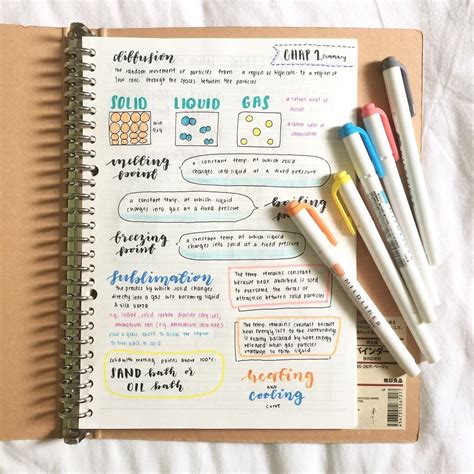 diffusion
CHAP 1 summary
the random movement of particles from a region of high conc. to a region of
low conc. through the spaces between the particles
SOLID LIQUID GAS
melting
point
a constant temp. at which solid
changes into liquid at a fixed pressure
a constant temp. at which liquid
changes into gas at a fixed pressure
boiling
point
freezing
point
a constant temp. at which liquid
changes into solid at a fixed pressure
sublimation
the process by which solid changes
directly into a gas w/o becoming liquid
& vice versa
e.g. iodine, solid carbon dioxide (dry ice),
ammonium salt (e.g. ammonium chloride)
the temp. remains constant
because heat absorbed is used
to overcome the forces of
attraction between solid particles
the temp. remains constant because
heat energy loss to the surroundings
is exactly balanced by heat energy
released when particles
to form liquid
solid with melting points above 100°C:
SAND bath or
OIL bath
heating
and
cooling
curve
MILDLINER
バインダー
BINDER
無印良品